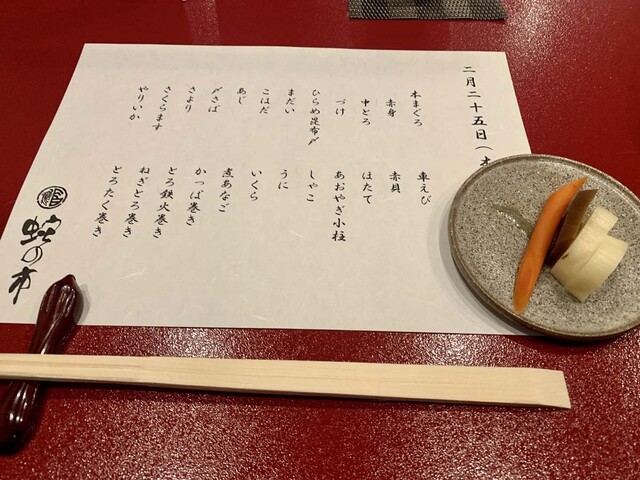 二月二十五日(木
本まぐろ
赤身
中とろ
づけ
ひらめ昆布〆
まだい
こはだ
あじ
〆さば
さより
さくらます
やりいか
車えび
赤貝
ほたて
あおやぎ小柱
しゃこ
うに
いくら
煮あなご
かっぱ巻き
とろ鉄火巻き
ねぎとろ巻き
とろたく巻き
蛇の市